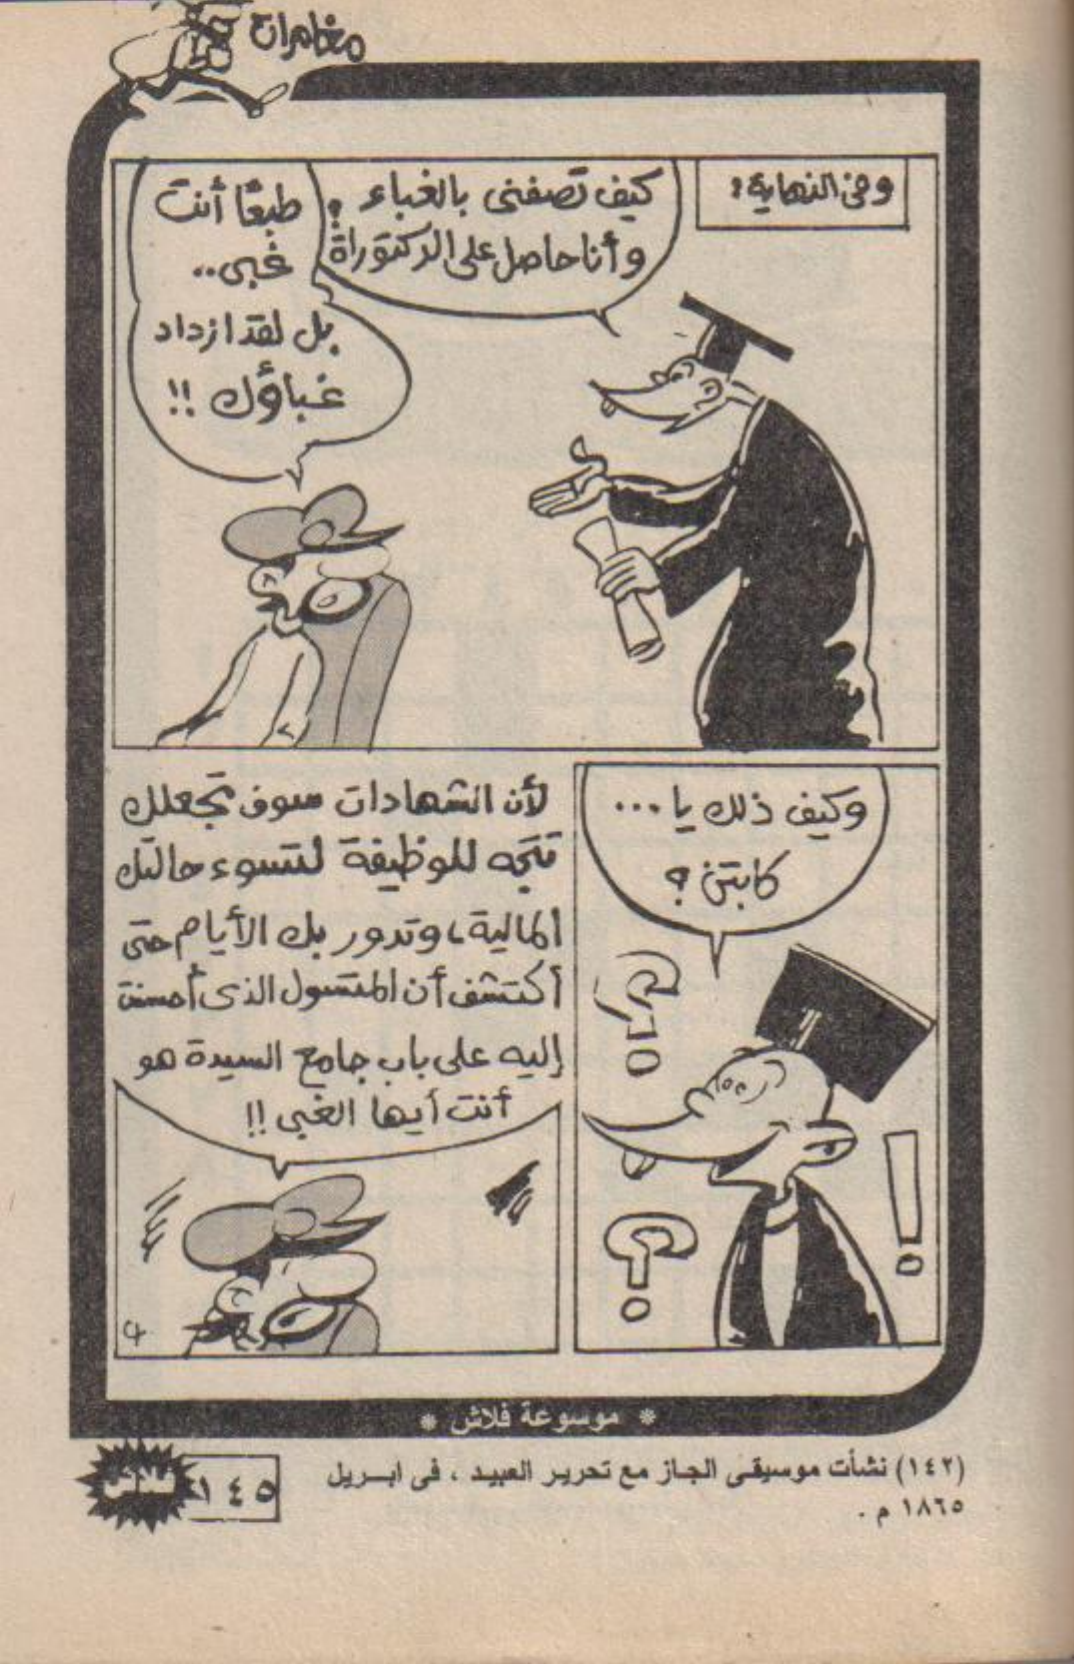 مغامرات
وفى النهاية:
كيف تصفنى بالغباء
وأنا حاصل على الدكتوراة؟
طبعًا أنت
غبى..
بل لقد ازداد
غباؤك !!
وكيف ذلك يا ...
كابتن ؟
لأن الشهادات سوف تجعلك
تتجه للوظيفة لتسوء حالتك
المالية، وتدور بك الأيام حتى
أكتشف أن المتسول الذى أحسنت
إليه على باب جامع السيدة هو
أنت أيها الغبى !!
* موسوعة فلاش *
(١٤٢) نشأت موسيقى الجاز مع تحرير العبيد ، فى ابـريل
١٨٦٥ م .
١٤٥